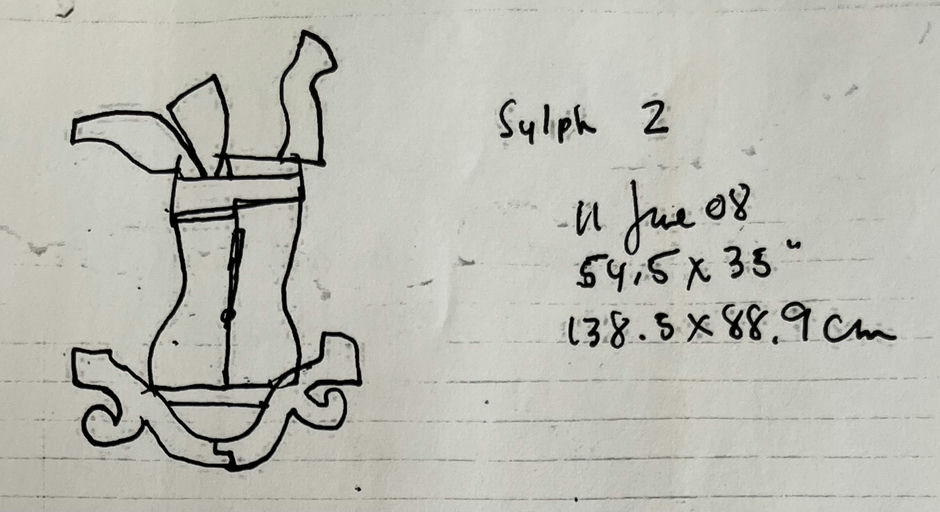 Sylph 2
11 June 08
54.5 x 35"
138.5 x 88.9 cm